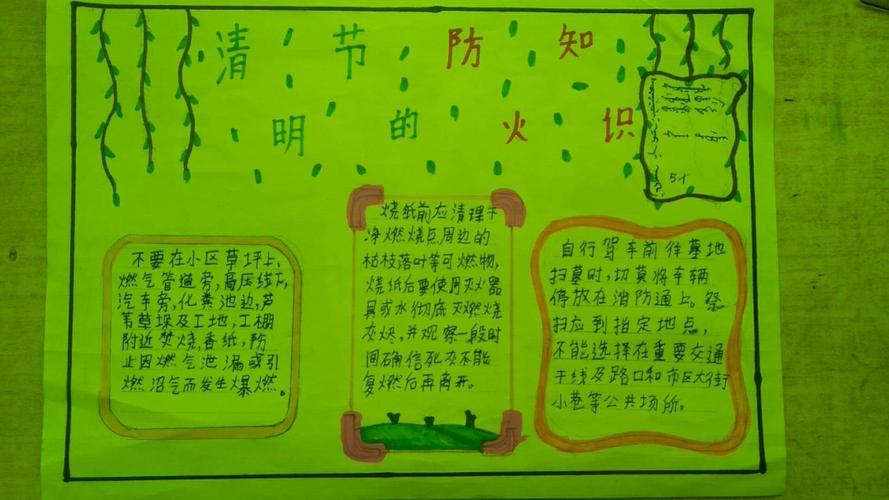 清明节的防火知识
不要在小区草坪上,
燃气管道旁,高压线下,
汽车旁,化粪池边,芦
苇草垛及工地,工棚
附近焚烧,香纸,防
止因燃气泄漏或引
燃沼气而发生爆燃。
烧纸前应清理干
净燃烧点周边的
枯枝落叶等可燃物,
烧纸后要使用灭火器
具或水彻底灭燃烧
灰烬,并观察一段时
间确信死灰不能
复燃后再离开。
自行驾车前往墓地
扫墓时,切莫将车辆
停放在消防通上。祭
扫应到指定地点,
不能选择在重要交通
干线及路口和市区大街
小巷等公共场所。